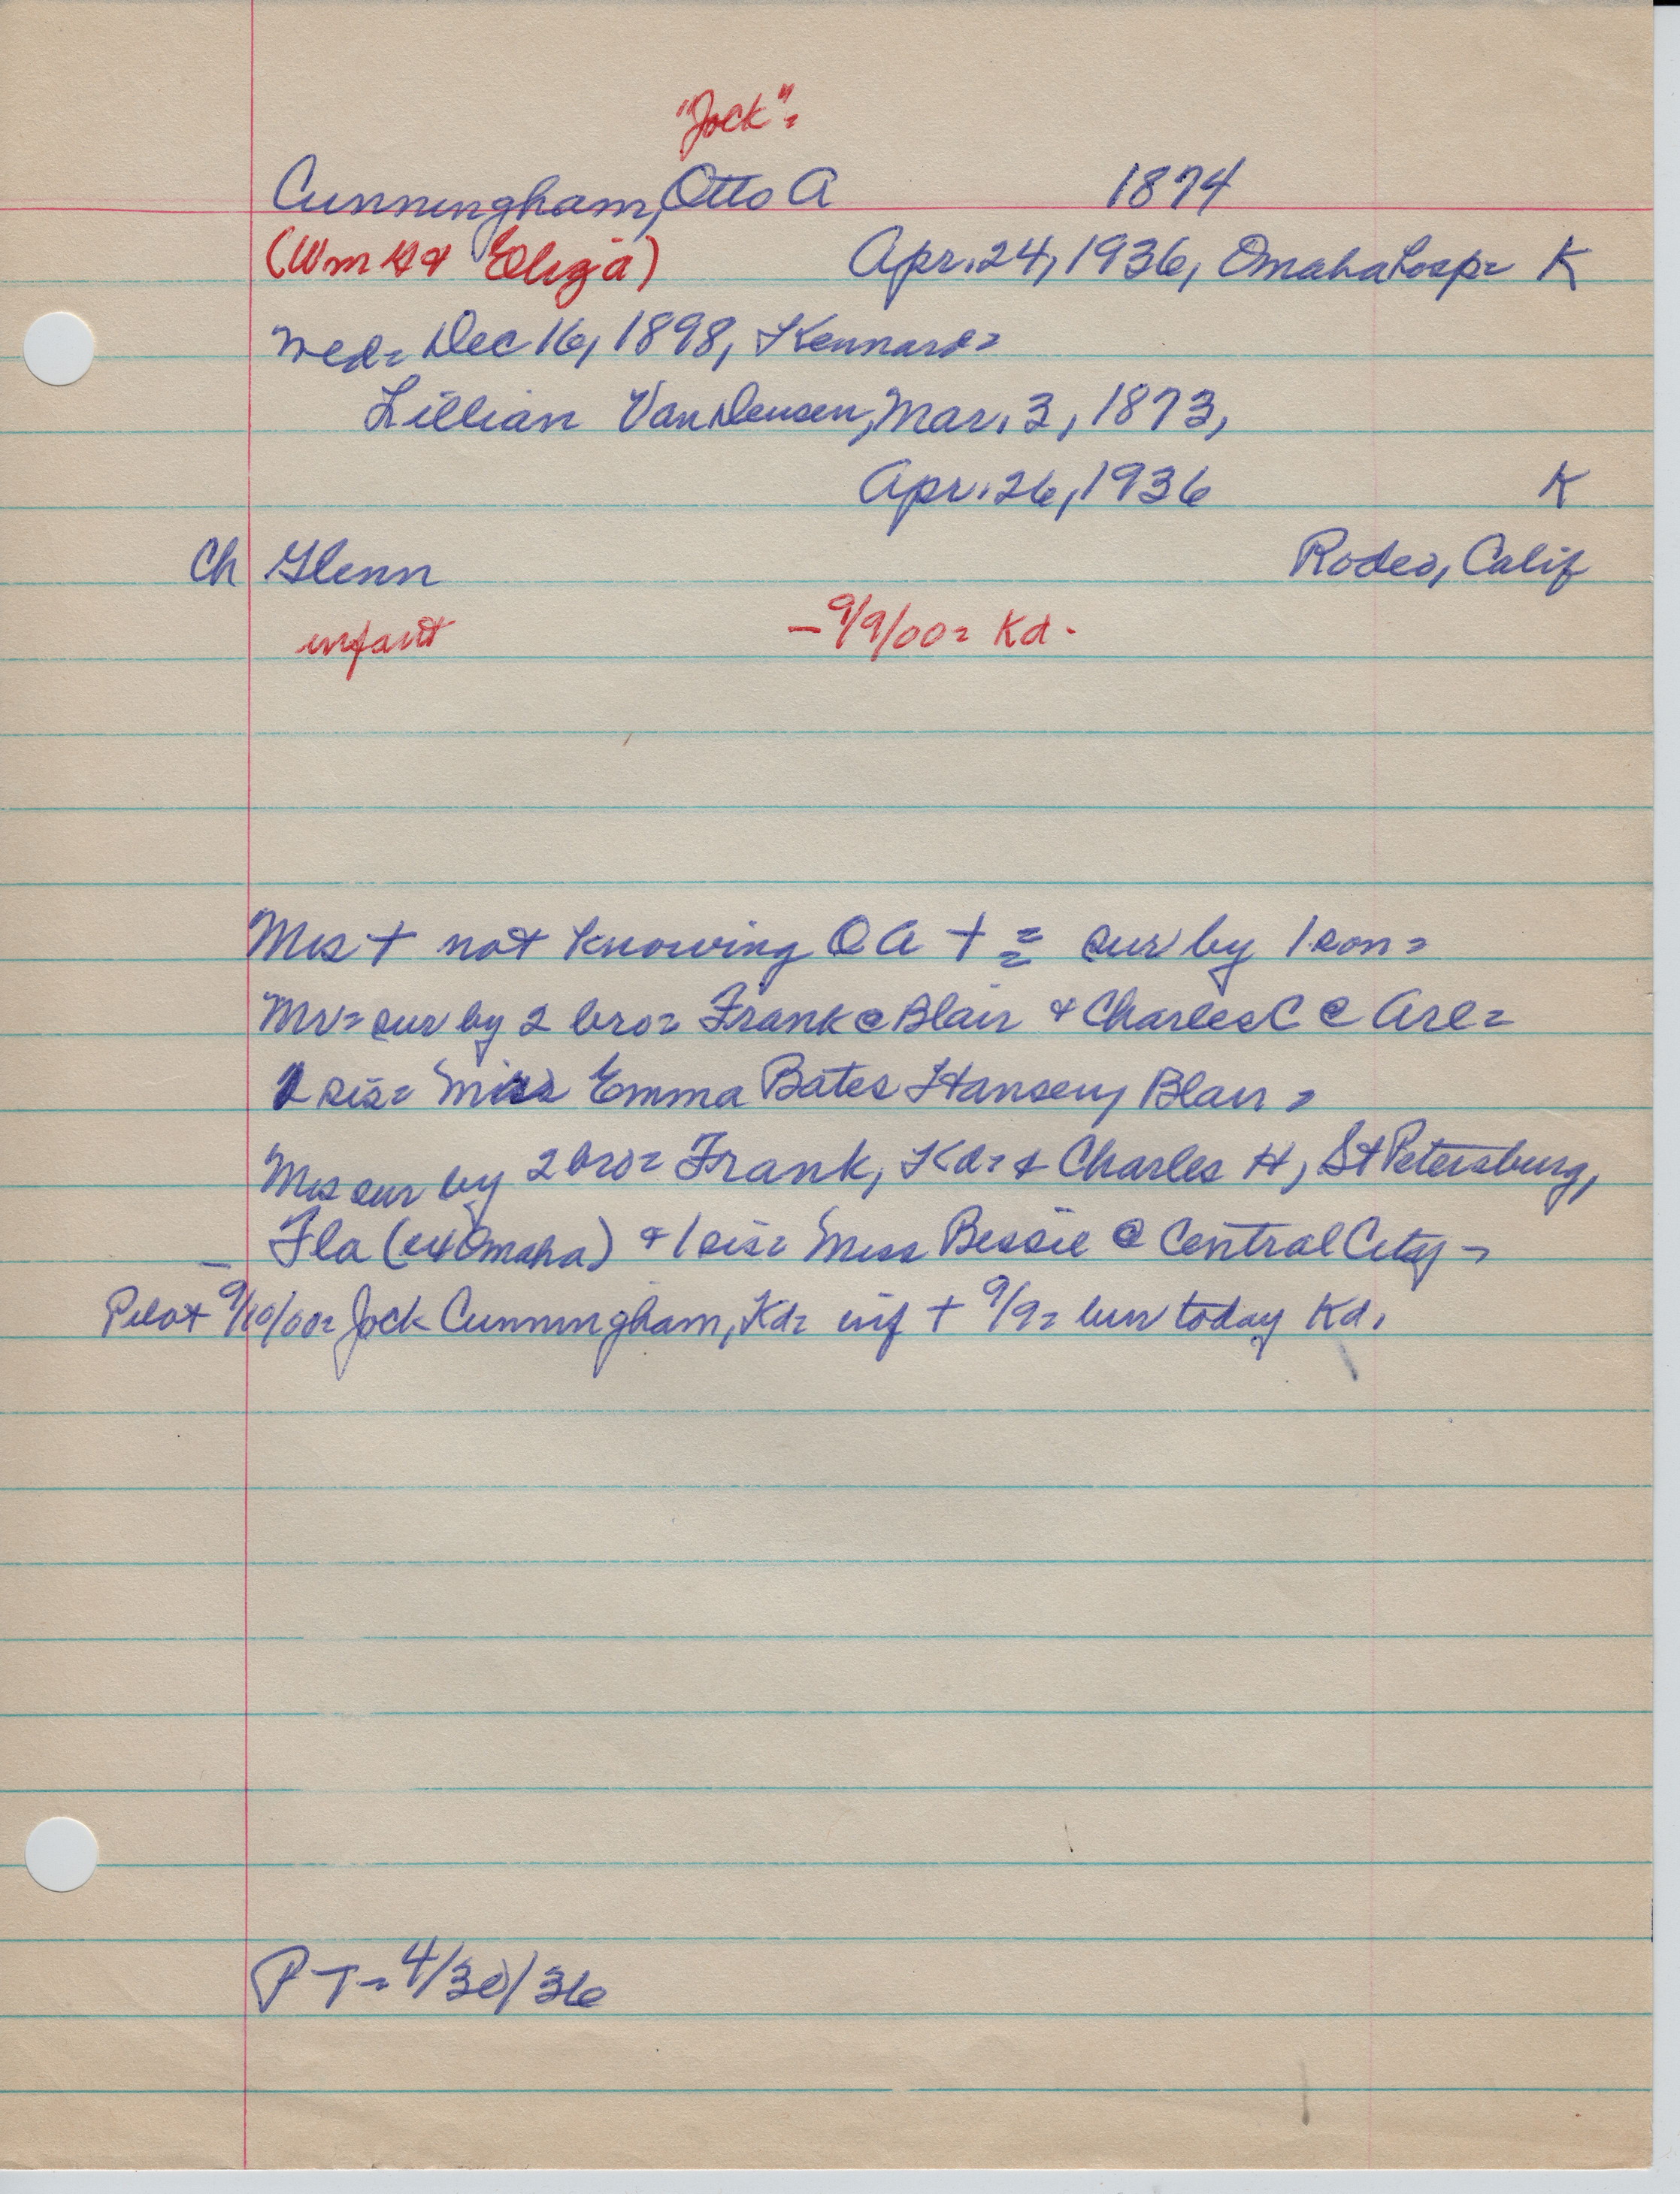 "Jock"=
Cunningham, Otto A 1874
(Wm H & Eliza) Apr. 24, 1936, Omaha hosp= K
Wed= Dec 16, 1898, Kennard=
Lillian Van Deusen, Mar. 3, 1873,
Apr. 26, 1936 K
Ch Glenn Rodeo, Calif
infant - 9/9/00= Kd.
Mrs + not knowing O A + = sur by 1 son=
Mr= sur by 2 bro= Frank @ Blair & Charles C @ Arl=
sis= Miss Emma Bates Hansen, Blair=
Mrs sur by 2 bro= Frank, Kd= & Charles H, St Petersburg,
Fla (ex Omaha) & 1 sis= Miss Bessie @ Central City-
Pilot 9/10/00= Jock Cunningham, Kd= inf + 9/9= bur today Kd.
P T= 4/30/36